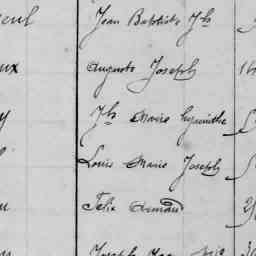 Jean Baptiste Jh
ux Auguste Joseph
y Jh Marie hyacinthe
Louis Marie Joseph
Felix Armand
Joseph